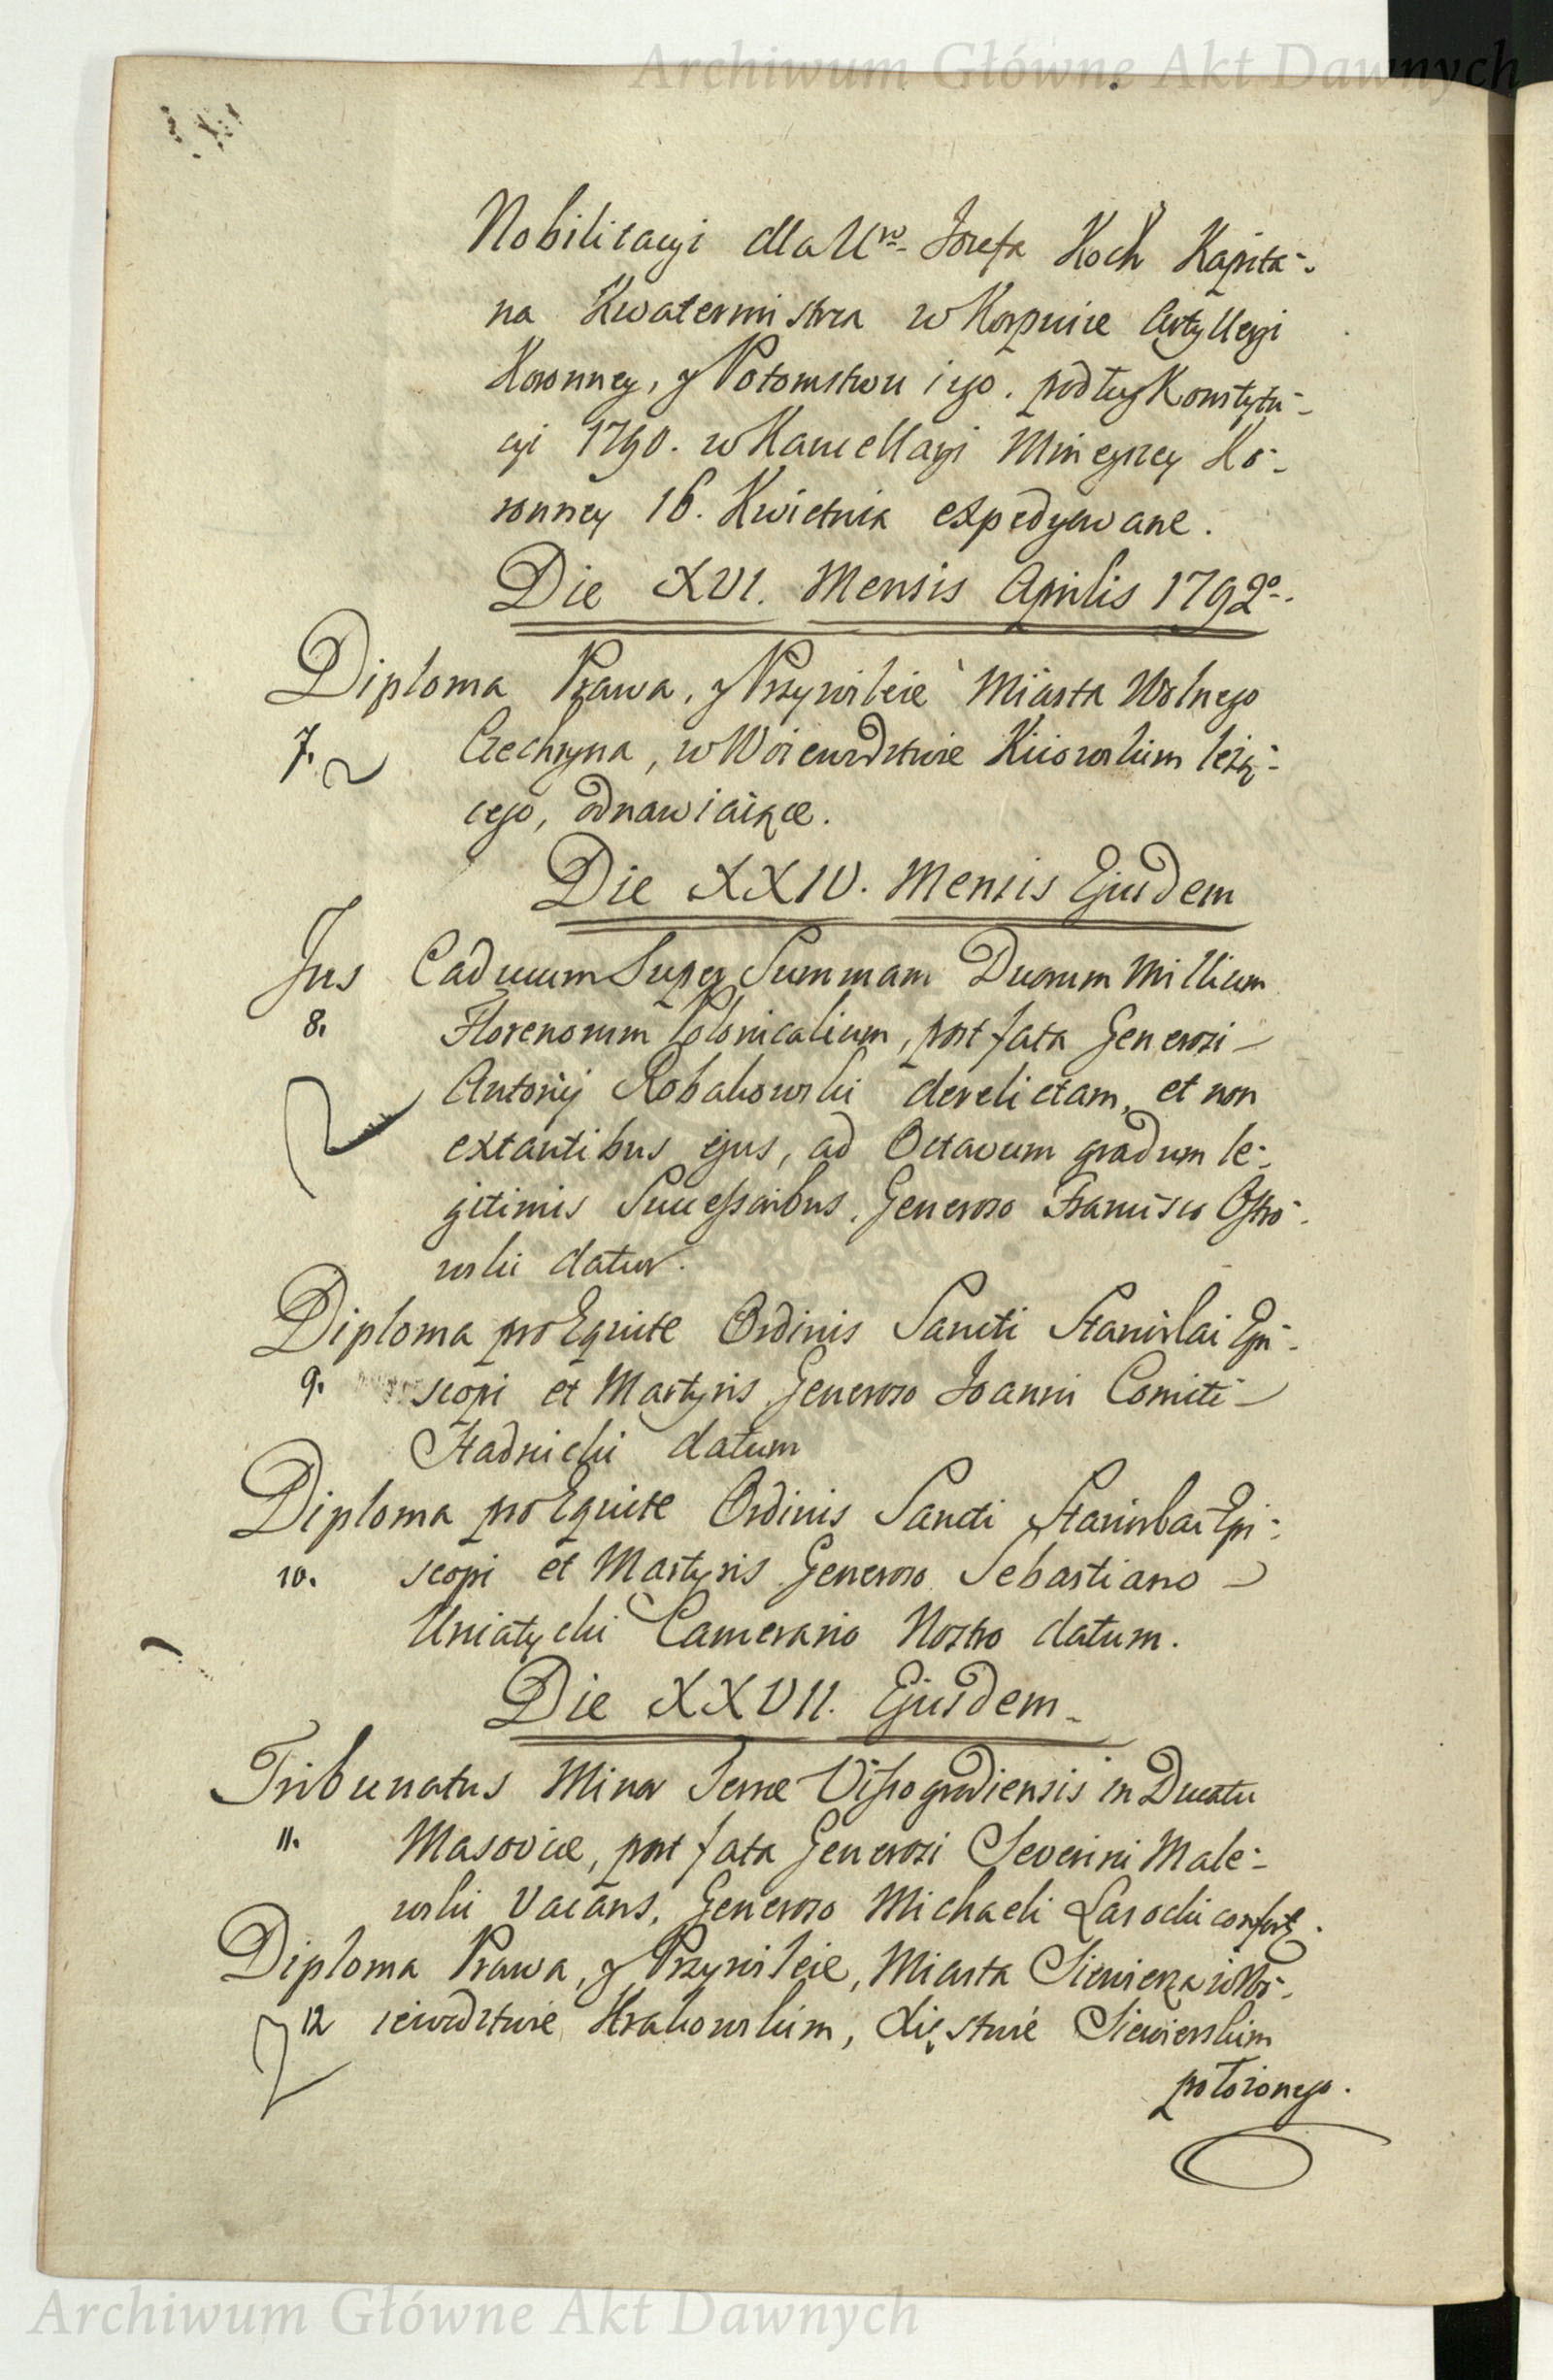 Archiwum Główne Akt Dawnych
Nobilitacyi dla Uro. Jozefa Koch Kapita-
na Kwatermistrza w Korpusie Artylleryi
Koronney, y Potomstwu iego. podług Konstytu-
cyi 1790. w Kancellaryi Mnieyszey Ko-
ronney 16. Kwietnia expedyowane.
Die XVI. Mensis Aprilis 1792o.
Diploma Prawa, y Przywileie Miasta Wolnego
7. Czechryna, w Woiewodztwie Kiiowskim leżą-
cego, odnawiaiące.
Die XXIV. Mensis Ejusdem
Jus Caducum Super Summam Duorum Millium
8. Florenorum Polonicalium, post fata Generosi
Antonij Robakowski derelictam, et non
extantibus ejus, ad Octavum gradum le-
gitimis Successoribus, Generoso Francisco Ostro-
wski datur.
Diploma pro Equite Ordinis Sancti Stanislai Epi-
9. scopi et Martyris Generoso Joanni Comiti
Stadnicki datum
Diploma pro Equite Ordinis Sancti Stanislai Epi-
10. scopi et Martyris Generoso Sebastiano
Uniatycki Camerario Nostro datum.
Die XXVII. Ejusdem
Tribunatus Minor Terrae Vissogrodiensis in Ducatu
11. Masoviae, post fata Generosi Severini Male-
wski Vacans, Generoso Michaeli Lasocki confert.
Diploma Prawa, y Przywileie, Miasta Siewierza w Wo-
12 iewodztwie Krakowskim, Xięstwie Siewierskim
położonego.
Archiwum Główne Akt Dawnych